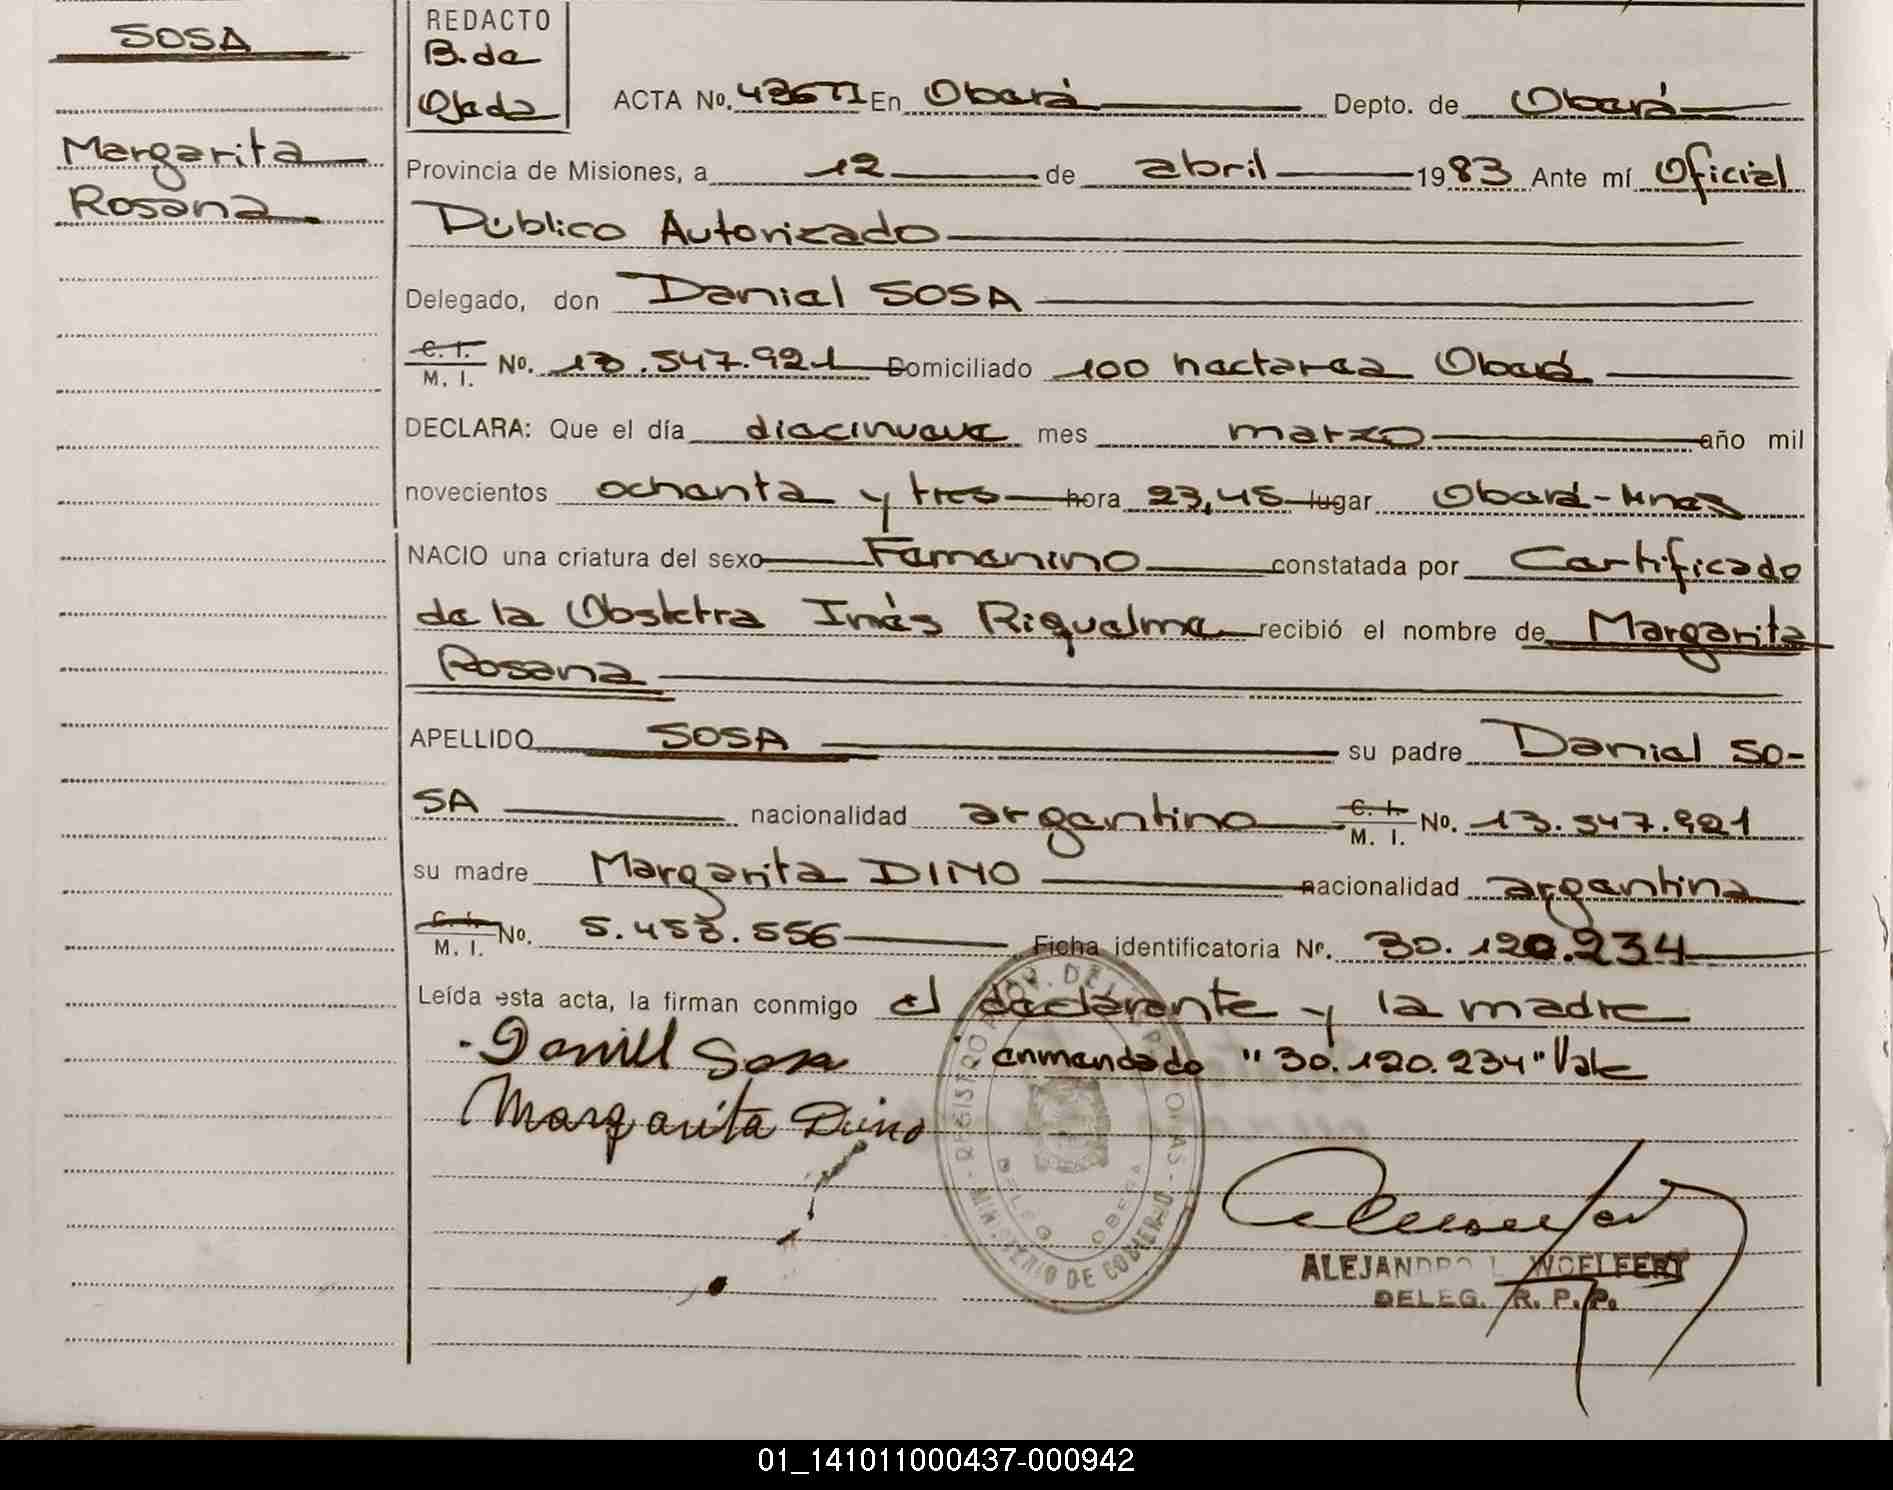 SOSA
Margarita
Rosana
REDACTO
B. de
Ojeda
ACTA No. 436 TI En Oberá Depto. de Oberá
Provincia de Misiones, a 12 de abril 1983 Ante mí Oficial
Público Autorizado
Delegado, don Daniel SOSA
C. I. / M. I. No. 13.547.921 Domiciliado 100 hectarea Oberá
DECLARA: Que el día diecinueve mes marzo año mil
novecientos ochenta y tres hora 23,45 lugar Oberá-Mnes
NACIO una criatura del sexo Femenino constatada por Certificado
de la Obstetra Inés Riquelme recibió el nombre de Margarita
Rosana
APELLIDO SOSA su padre Daniel SO-
SA nacionalidad argentino C. I. / M. I. No. 13.547.921
su madre Margarita DINO nacionalidad argentina
C. I. / M. I. No. 5.453.556 Ficha identificatoria Nr. 30.120.234
Leída esta acta, la firman conmigo el declarante y la madre
Daniel Sosa enmendado "30.120.234" Vale
Margarita Dino
REGISTRO PROV. DE LAS PERSONAS
DELEG. OBERA
MINISTERIO DE GOBIERNO
ALEJANDRO L. WOELFERT
DELEG. R. P. P.
01_141011000437-000942